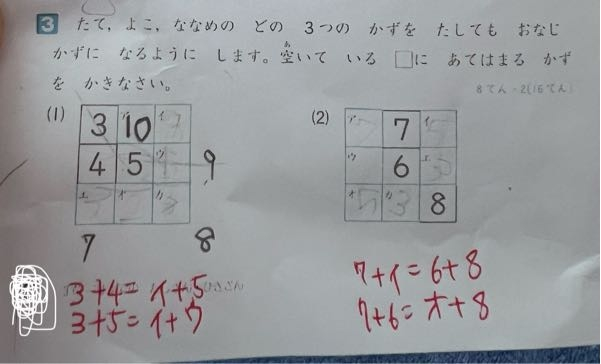 3 たて，よこ，ななめの どの 3つの かずを たしても おなじ
かずに なるように します。空いて いる □に あてはまる かず
を かきなさい。
あ
8てん×2(16てん)
(1)
3 ア 10 イ
4 5 ウ 9
エ オ カ
7 8
3+4=イ+5
3+5=イ+ウ
(2)
ア 7 イ
ウ 6 エ
オ カ 8
7+イ=6+8
7+6=オ+8